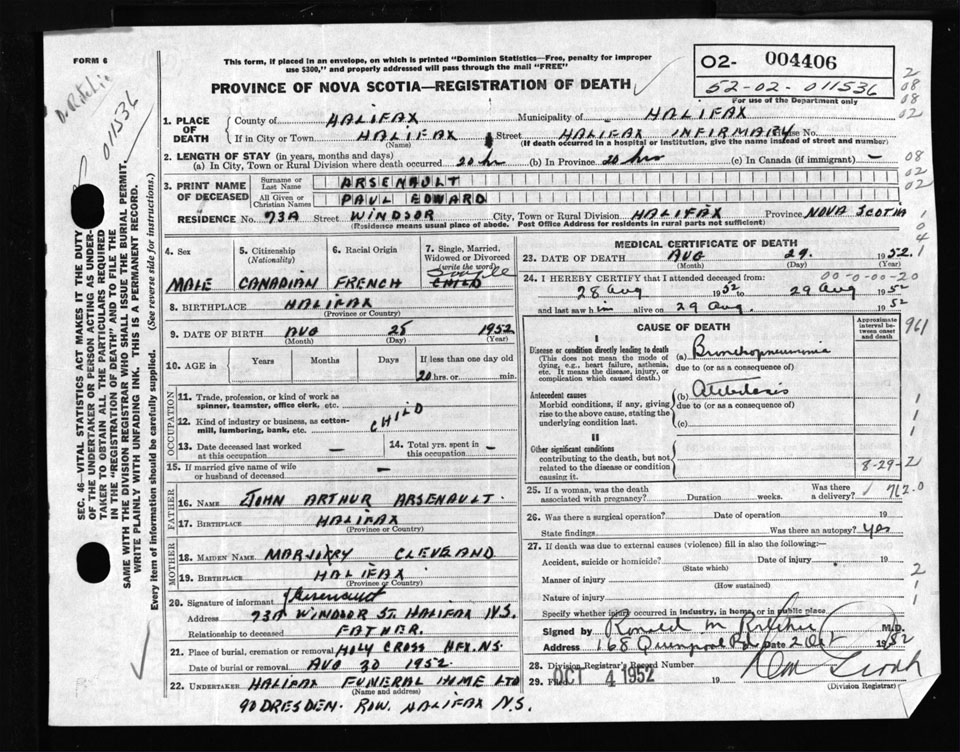 FORM 6
This form, if placed in an envelope, on which is printed "Dominion Statistics—Free, penalty for improper
use $300," and properly addressed will pass through the mail "FREE"
PROVINCE OF NOVA SCOTIA—REGISTRATION OF DEATH
02- 004406
52-02-011536
For use of the Department only
Dr Ritchie
011536
SEC. 46 — VITAL STATISTICS ACT MAKES IT THE DUTY
OF THE UNDERTAKER OR PERSON ACTING AS UNDER-
TAKER TO OBTAIN ALL THE PARTICULARS REQUIRED
IN THE "REGISTRATION OF DEATH" AND TO FILE THE
SAME WITH THE DIVISION REGISTRAR WHO SHALL ISSUE THE BURIAL PERMIT.
WRITE PLAINLY WITH UNFADING INK. THIS IS A PERMANENT RECORD.
Every item of information should be carefully supplied. (See reverse side for instructions.)
1. PLACE OF DEATH
County of HALIFAX Municipality of HALIFAX
If in City or Town HALIFAX Street HALIFAX INFIRMARY House No.
(Name) (If death occurred in a hospital or institution, give the name instead of street and number)
2. LENGTH OF STAY (in years, months and days)
(a) In City, Town or Rural Division where death occurred 20 hr (b) In Province 20 hrs (c) In Canada (if immigrant) —
3. PRINT NAME OF DECEASED
Surname or Last Name ARSENAULT
All Given or Christian Names PAUL EDWARD
RESIDENCE No. 73A Street WINDSOR City, Town or Rural Division HALIFAX Province NOVA SCOTIA
(Residence means usual place of abode. Post Office Address for residents in rural parts not sufficient)
4. Sex 5. Citizenship (Nationality) 6. Racial Origin 7. Single, Married, Widowed or Divorced (write the word)
MALE CANADIAN FRENCH Single CHILD
8. BIRTHPLACE HALIFAX
(Province or Country)
9. DATE OF BIRTH AUG 28 1952
(Month) (Day) (Year)
10. AGE in Years Months Days If less than one day old
20 hrs. or min.
OCCUPATION
11. Trade, profession, or kind of work as
spinner, teamster, office clerk, etc.
12. Kind of industry or business, as cotton-
mill, lumbering, bank, etc. CHILD
13. Date deceased last worked
at this occupation —
14. Total yrs. spent in
this occupation —
15. If married give name of wife
or husband of deceased —
FATHER
16. NAME JOHN ARTHUR ARSENAULT
17. BIRTHPLACE HALIFAX
(Province or Country)
MOTHER
18. MAIDEN NAME MARJORY CLEVELAND
19. BIRTHPLACE HALIFAX
(Province or Country)
20. Signature of informant J Arsenault
Address 73A WINDSOR ST. HALIFAX N.S.
Relationship to deceased FATHER.
21. Place of burial, cremation or removal HOLY CROSS HFX. N.S.
Date of burial or removal AUG 30 1952.
22. UNDERTAKER HALIFAX FUNERAL HOME LTD
(Name and address)
90 DRESDEN ROW. HALIFAX N.S.
MEDICAL CERTIFICATE OF DEATH
23. DATE OF DEATH AUG 29. 1952.
(Month) (Day) (Year)
24. I HEREBY CERTIFY that I attended deceased from: 00-0-00-20
28 Aug 1952 to 29 Aug 1952
and last saw him alive on 29 Aug. 1952
CAUSE OF DEATH
Approximate interval between onset and death
I
Disease or condition directly leading to death (a) Bronchopneumonia
(This does not mean the mode of
dying, e.g., heart failure, asthenia,
etc. It means the disease, injury, or
complication which caused death.)
due to (or as a consequence of)
Antecedent causes (b) Atelectasis
Morbid conditions, if any, giving
rise to the above cause, stating the
underlying condition last.
due to (or as a consequence of)
(c)
II
Other significant conditions
contributing to the death, but not
related to the disease or condition
causing it.
8-29-2
25. If a woman, was the death
associated with pregnancy? Duration weeks. Was there
a delivery?
762.0
26. Was there a surgical operation? Date of operation 19
State findings Was there an autopsy? Yes
27. If death was due to external causes (violence) fill in also the following:—
Accident, suicide or homicide? Date of injury 19
(State which)
Manner of injury
(How sustained)
Nature of injury
Specify whether injury occurred in industry, in home or in public place
Signed by Ronald M Ritchie M.D.
Address 168 Quinpool Rd Date 2 Oct 1952
28. Division Registrar's Record Number
29. Filed OCT 4 1952 19
(Division Registrar)
2
08
08
02
08
02
02
1
0
4
1
961
1
1
1
2
1
1